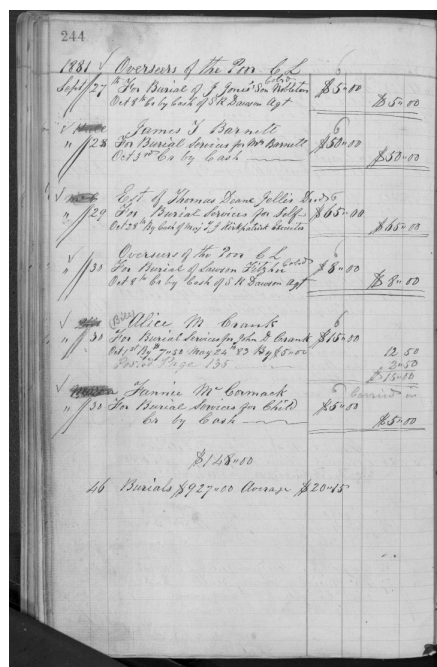 244
1881 Overseers of the Poor C L 6
Sept 27 th For Burial of J Jones' Son Colrd $5"00
Oct 8th Cr by Cash of S R Dawson Agt $5"00
James T Barnett 6
" 28 For Burial Services for Mrs Barnett $50"00
Oct 3rd Cr by Cash $50"00
Est of Thomas Deane Jellis Decd 6
" 29 For Burial Services for Self $65"00
Oct 28th By Cash of Maj T J Kirkpatrick Executor $65"00
Overseers of the Poor C L 6
" 30 For Burial of Lawson Colrd $8"00
Oct 8th Cr by Cash of S R Dawson Agt $8"00
Alice M Crank 6
" 30 For Burial Services for John D Crank $15"00
Oct 1st By 7"50 May 24th 83 By $5"00 12,50
Posted Page 135 2"50
$15"00
Fannie McCormack 6 Carried
" 30 For Burial Services for Child $5"00
Cr by Cash $5"00
$148"00
46 Burials $927"00 Average $20"15